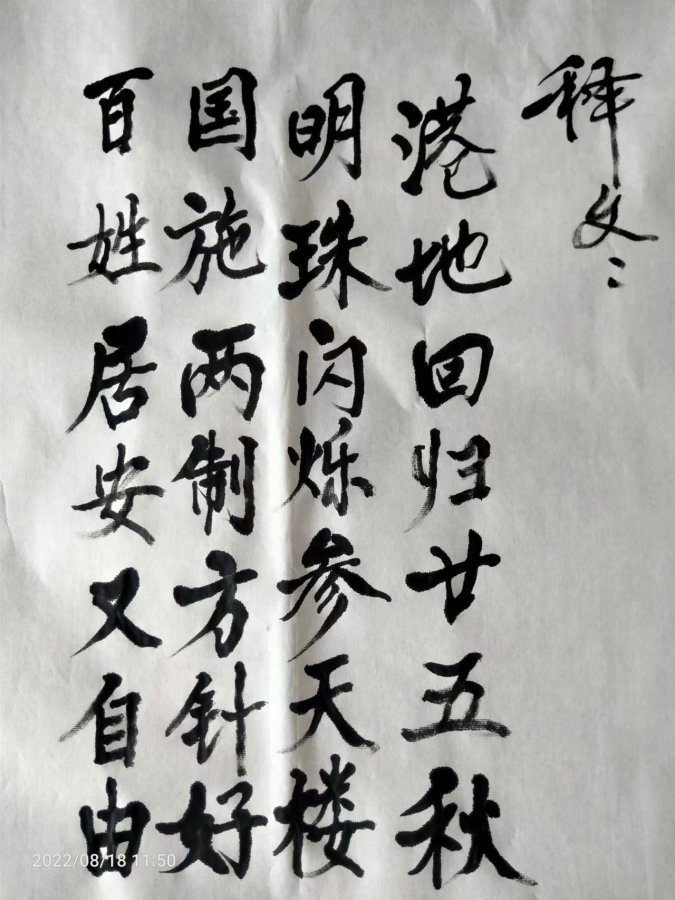 释文:
港地回归廿五秋
明珠闪烁参天楼
国施两制方针好
百姓居安又自由
2022/08/18 11:50